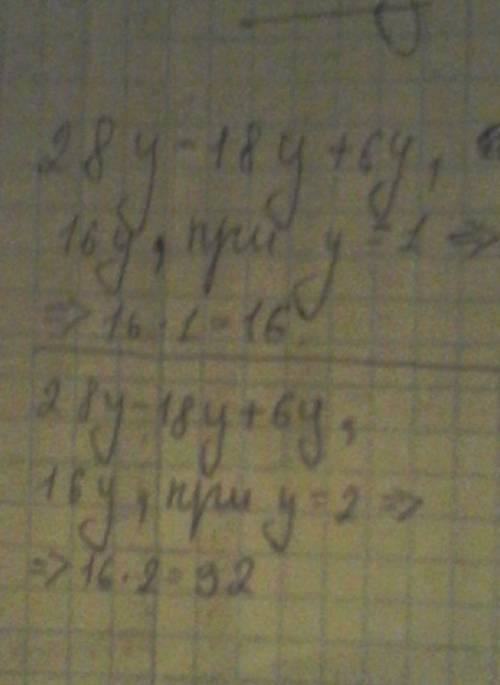 28y - 18y + 6y,
16y, при y = 1 =>
=> 16 · 1 = 16
28y - 18y + 6y,
16y, при y = 2 =>
=> 16 · 2 = 32